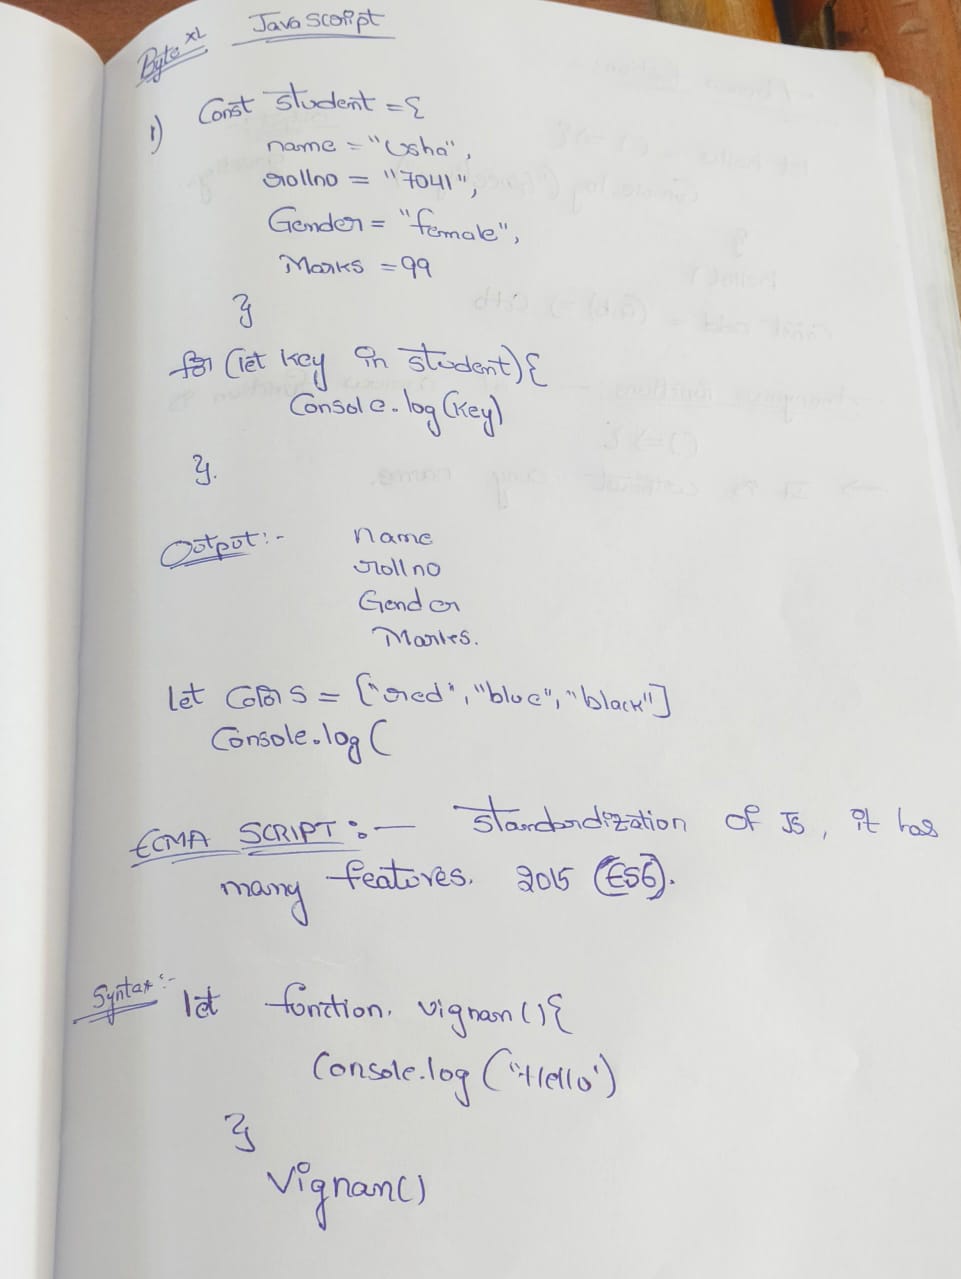 Byte XL
JavaScript
1) Const student = {
name = "Usha",
rollno = "7041",
Gender = "female",
Marks = 99
}
for (let key in student) {
Console.log(key)
}.
Output:-
name
rollno
Gender
Marks.
let Colors = ["red", "blue", "black"]
Console.log(
ECMA SCRIPT:- Standardization of JS, it has
many features. 2015 (ES6).
Syntax:- let function. vignan() {
Console.log("Hello")
}
Vignan()